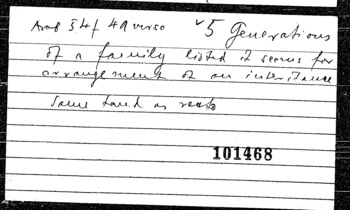 Arab 54f 49 verso ✓5 Generations
of a family listed it seems for
arrangement of an inheritance
Same hand as recto
101468